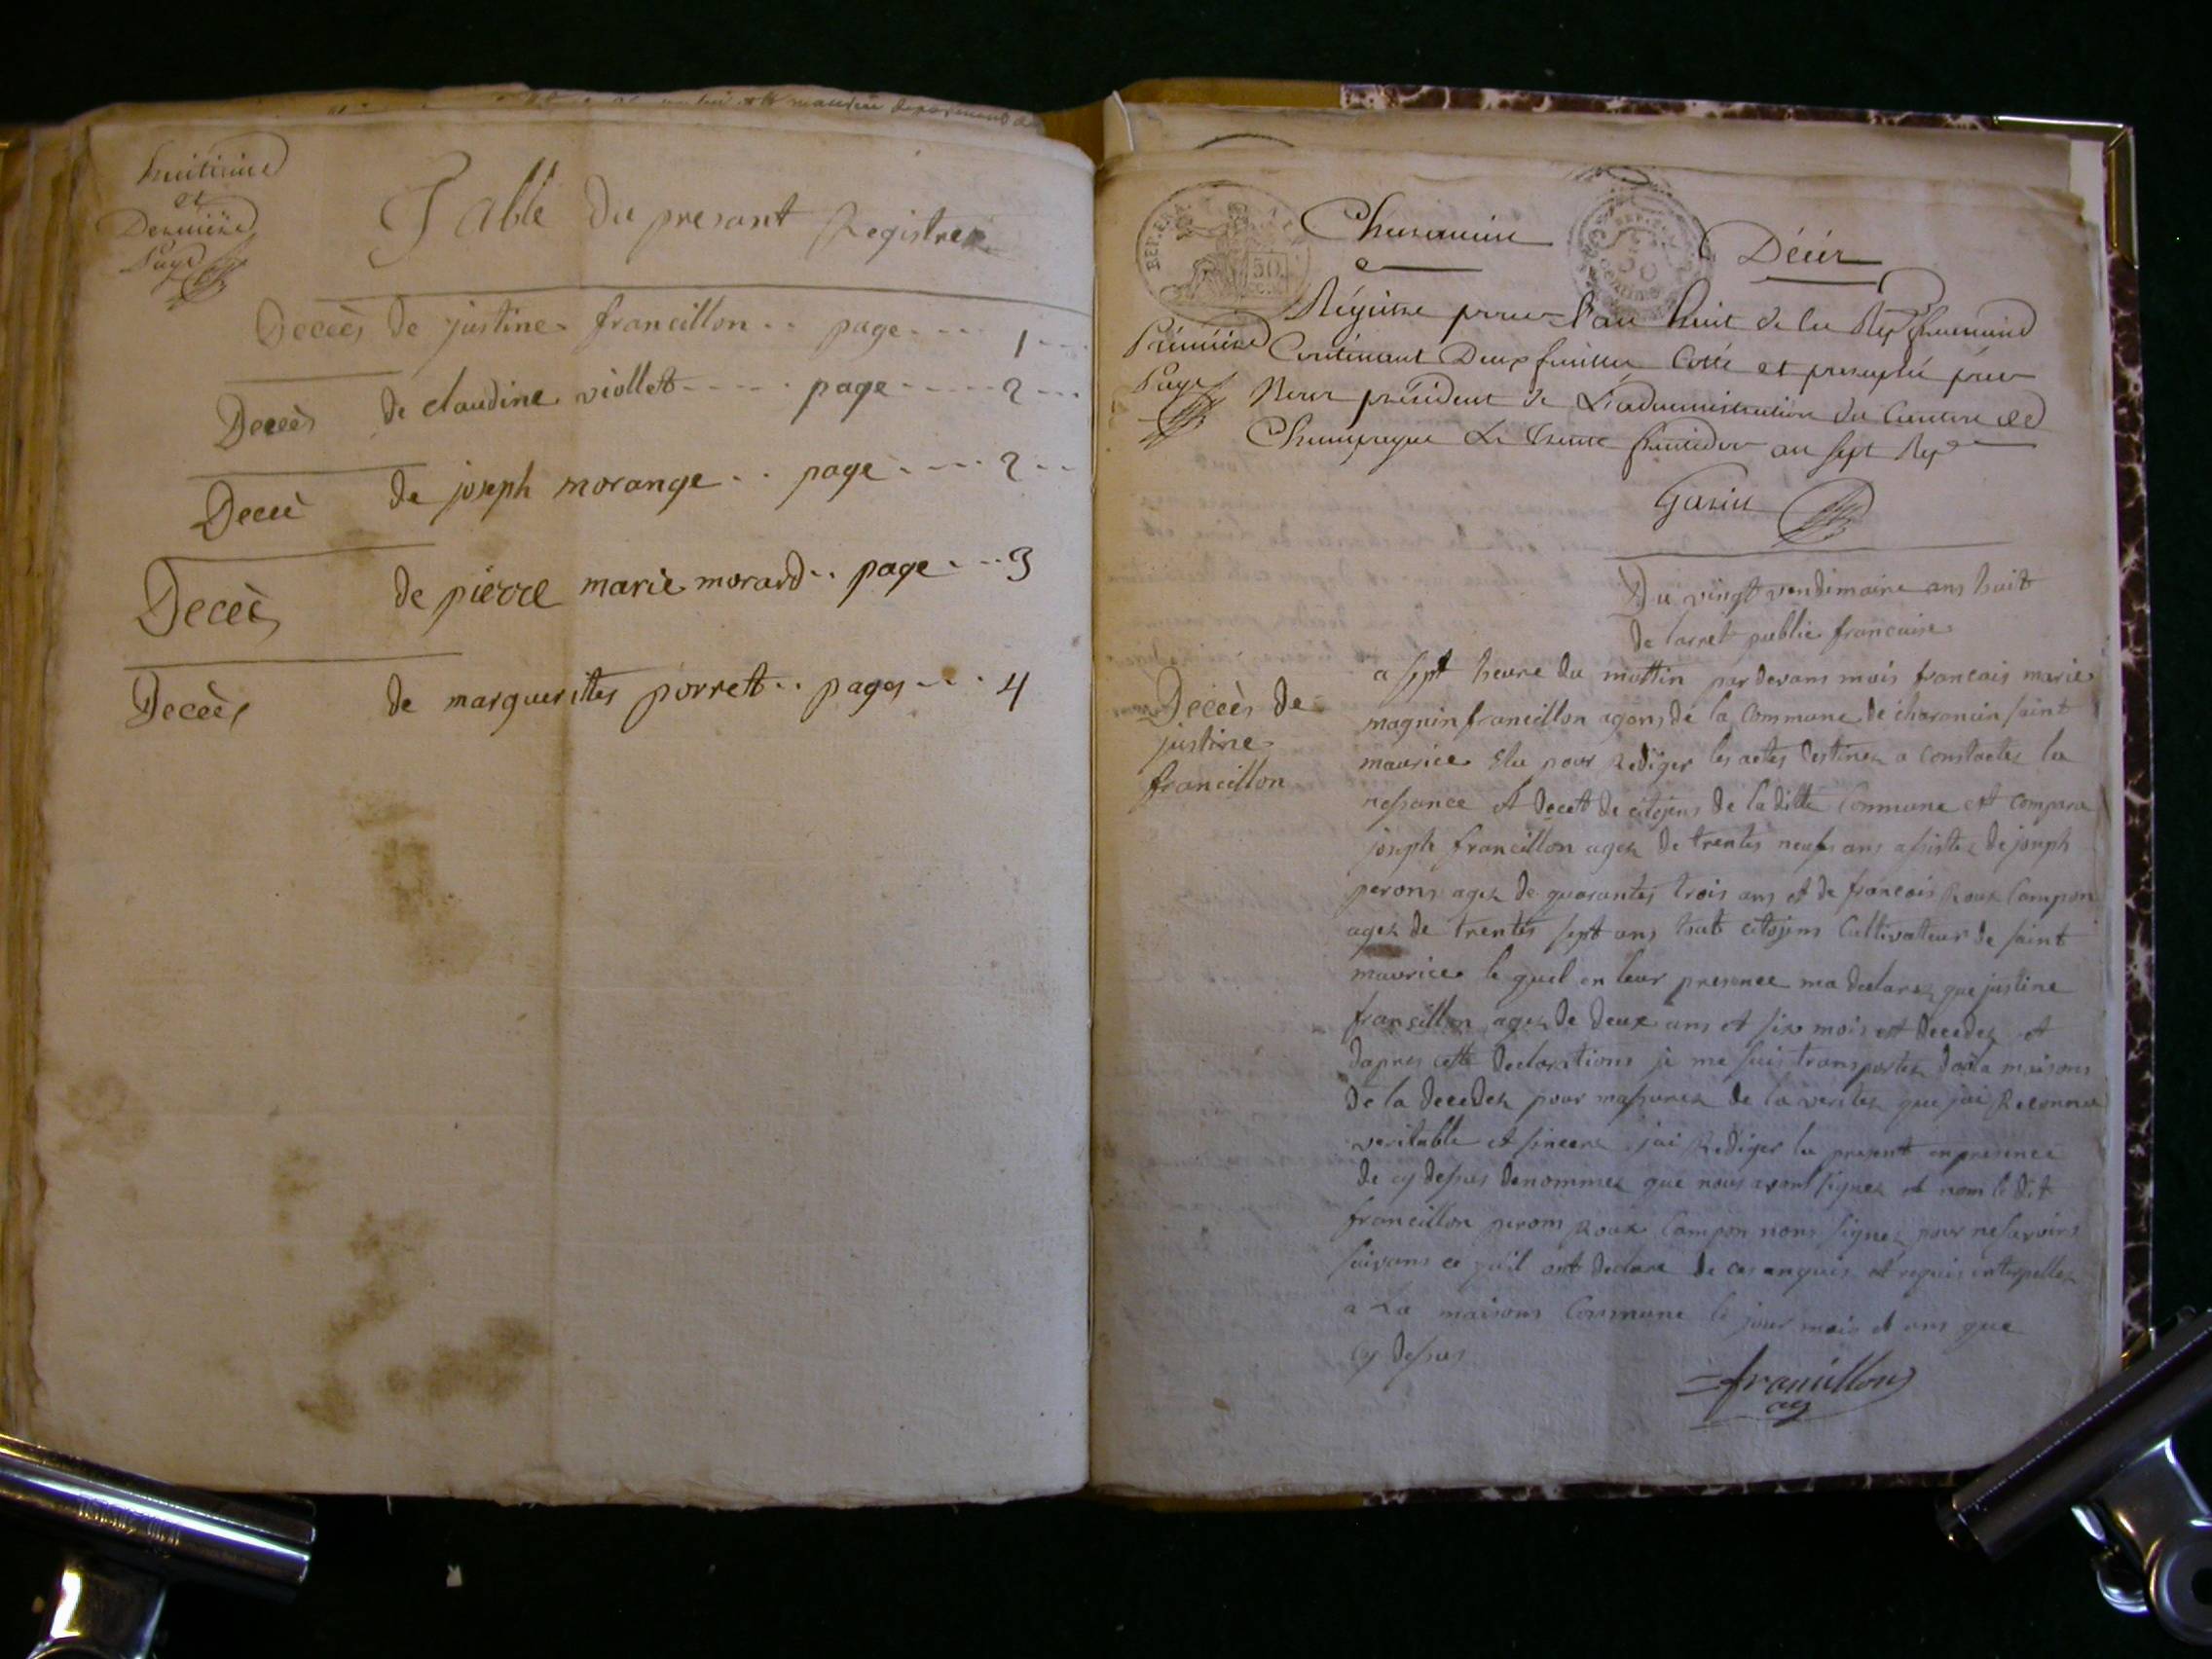 huitieme
et
Derniere
Page
Table du presant Registre
Decès de justine francillon .. page .... 1 ...
Decès de claudine viollet ..... page ..... 2 ...
Decè de joseph morange .. page .... 2 ..
Decès de pierre marie morard .. page ... 3
Decès de marguerittes porrett .. pages ... 4
REP. FRA.
50
Charancin
Décès
Régistre pour l'an huit de la Rep. francaise
Contenant Deux feuilles Cotté et paraphé par
Nous président de L'administration du Canton de
Champagne Le trente fructidor an sept Rep
Garin
Premiere
Page
Du vingt vendimaire ans huit
de larret publie francaise
Decès de
justine
francillon
a sept heure du mattin par devans mois francais marie
magnin francillon agans de la Commune de charancin saint
maurice Elu pour Rediger les actes destinez a constactez la
nessance et decett de citojens de la ditte Commune est compara
joseph francillon agez de trentes neufs ans assistez de joseph
perons agez de quarantes trois ans et de francois Roux Campon
agez de trentes sept ans tout citojens Cultivateur de saint
maurice le quel en leur presence ma declarez que justine
francillon agez de deux ans et six mois est decedez et
dapres cette declarations je me suis transportez dans la maisons
de la decedez pour massurez de la veritez que jai Reconnu
veritable et sincere jai Rediger la present en presence
de cy dessus denommez que nous avons signez et nom le dit
francillon perom Roux Campon nons signez pour ne savoirs
suivans ce quil ont declare de ces enquis et requis interpellez
a la maisons Commune le jour mois et ans que
cy dessus
francillon
ag